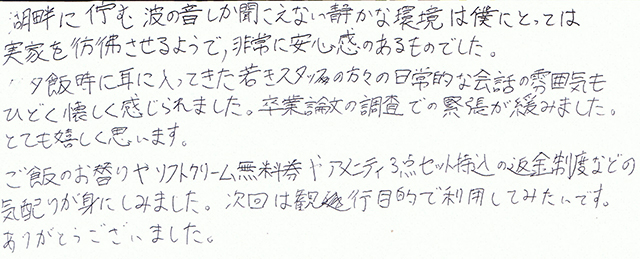 湖畔に佇む波の音しか聞こえない静かな環境は僕にとっては
実家を彷彿させるようで,非常に安心感のあるものでした。
夕飯時に耳に入ってきた若きスタッフの方々の日常的な会話の雰囲気も
ひどく懐しく感じられました。卒業論文の調査での緊張が緩みました。
とても嬉しく思います。
ご飯のお替りやソフトクリーム無料券やアメニティ3点セット持込の返金制度などの
気配りが身にしみました。次回は観光旅行目的で利用してみたいです。
ありがとうございました。